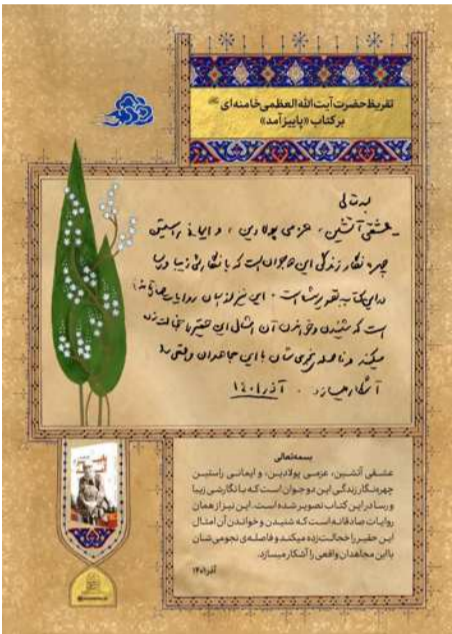 تقریظ حضرت آیت‌الله‌العظمی خامنه‌ای
بر کتاب «پاییز آمد»
بسمه‌تعالی
عشقی آتشین، عزمی پولادین، و ایمانی راستین
چهره‌نگار زندگی این دو جوان است که با نگارشی زیبا و رسا
در این کتاب تصویر شده است. این نیز از همان روایات صادقانه
است که شنیدن و خواندن آن امثال این حقیر را خجالت‌زده
میکند و فاصله‌ی نجومی‌شان با این مجاهدان واقعی را
آشکار میسازد. آذر ۱۴۰۱
بسمه‌تعالی
عشقی آتشین، عزمی پولادین، و ایمانی راستین
چهره‌نگار زندگی این دو جوان است که با نگارشی زیبا
و رسا در این کتاب تصویر شده است. این نیز از همان
روایات صادقانه است که شنیدن و خواندن آن امثال
این حقیر را خجالت‌زده میکند و فاصله‌ی نجومی‌شان
با این مجاهدان واقعی را آشکار میسازد.
آذر ۱۴۰۱